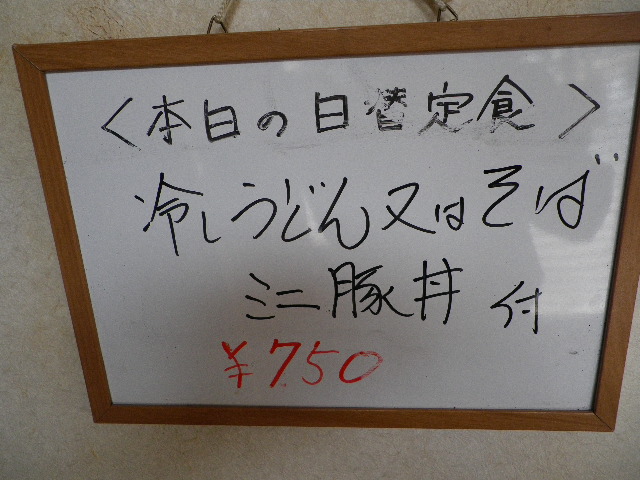 <本日の日替定食>
冷しうどん又はそば
ミニ豚丼 付
¥750